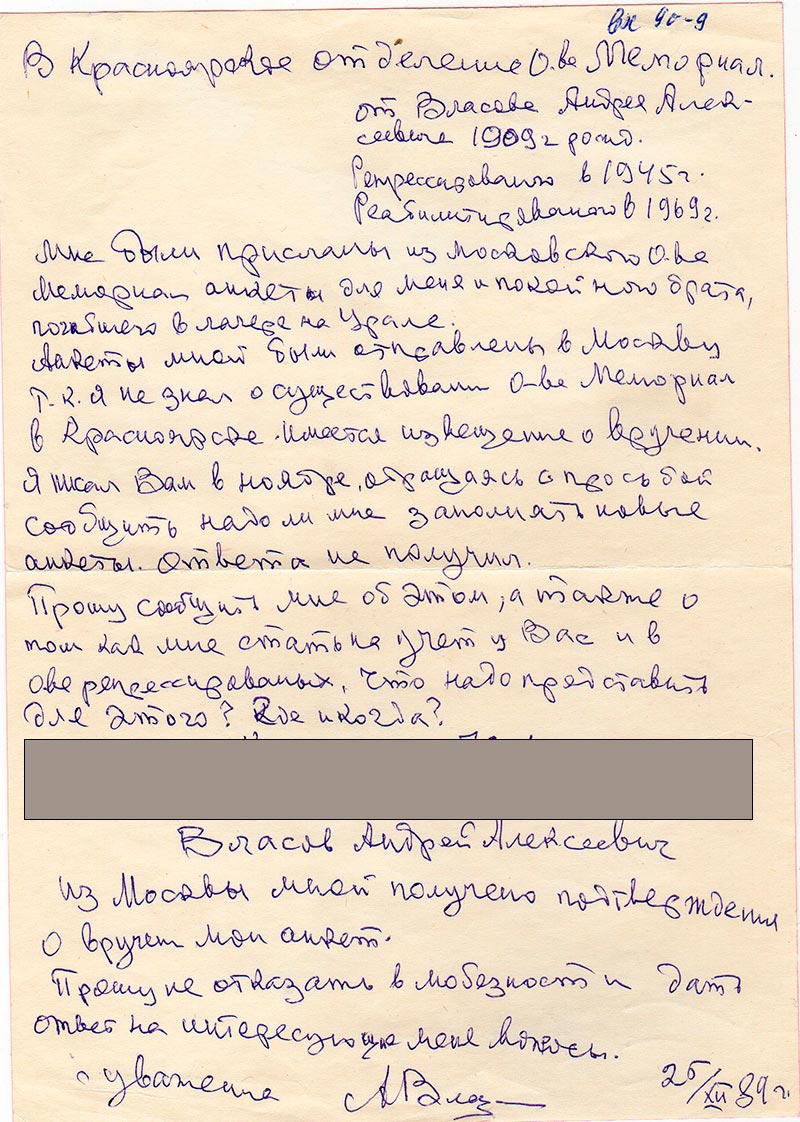 вх 90-9
В Красноярское отделение О-ва Мемориал.
от Власова Андрея Алек-
сеевича 1909 г рожд.
Репрессированного в 1945 г.
Реабилитированого в 1969 г.
Мне были присланы из московского О-ва
Мемориал анкеты для меня и покойного брата,
погибшего в лагере на Урале.
Анкеты мной были отправлены в Москву
т.к. я не знал о существовании О-ва Мемориал
в Красноярске. Имеется извещение о вручении.
Я писал Вам в ноябре, обращаясь с просьбой
сообщить надо ли мне заполнять новые
анкеты. Ответа не получил.
Прошу сообщить мне об этом, а также о
том как мне стать на учет у Вас и в
О-ве репрессированых, что надо представить
для этого? Где и когда?
Власов Андрей Алексеевич
Из Москвы мной получено подтверждения
о вручен мои анкет.
Прошу не отказать в любезности и дать
ответ на интересующие меня вопросы.
С уважением
25/XII 89 г.